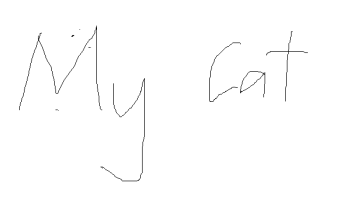 My Cat